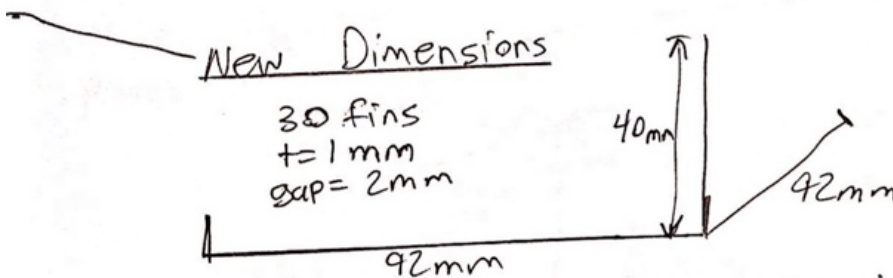 New Dimensions
30 fins
t=1mm
gap=2mm
40mm
92mm
92mm